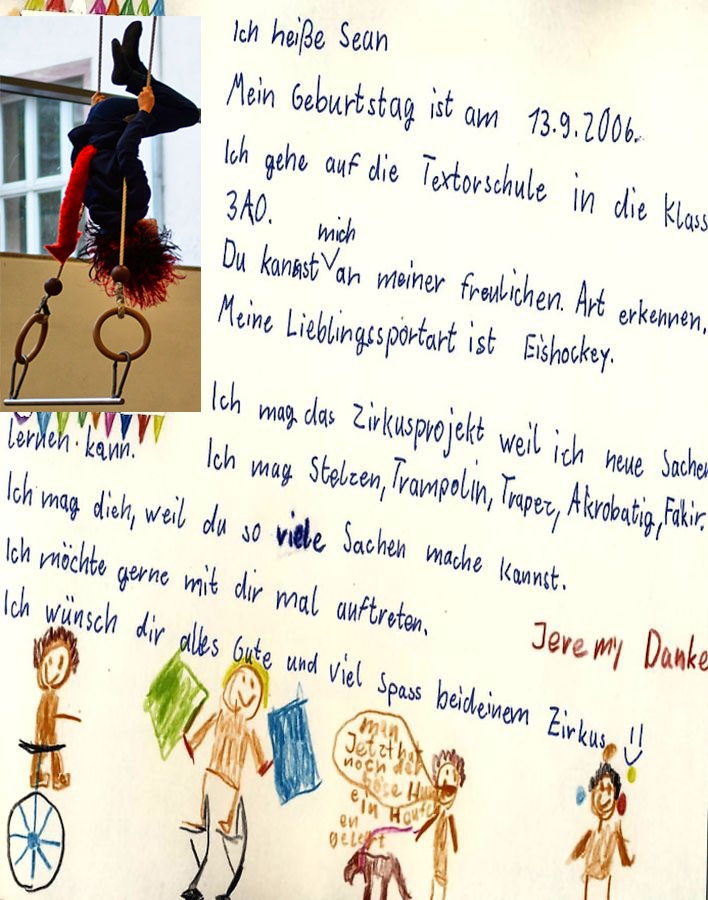 Ich heiße Sean
Mein Geburtstag ist am 13.9.2006.
Ich gehe auf die Textorschule in die Klass
3A0.
mich
Du kannst an meiner freulichen Art erkennen,
Meine Lieblingssportart ist Eishockey.
Ich mag das Zirkusprojekt weil ich neue Sachen
lernen kann.
Ich mag Stelzen, Trampolin, Trapez, Akrobatig, Fakir.
Ich mag dieh, weil du so viele Sachen mache kannst.
Ich möchte gerne mit dir mal auftreten.
Jeremy Danke
Ich wünsch dir alles Gute und viel Spass beideinem Zirkus !!
man
Jetzt hat
noch der
böse Hu
ein Haufe
en
gelegt